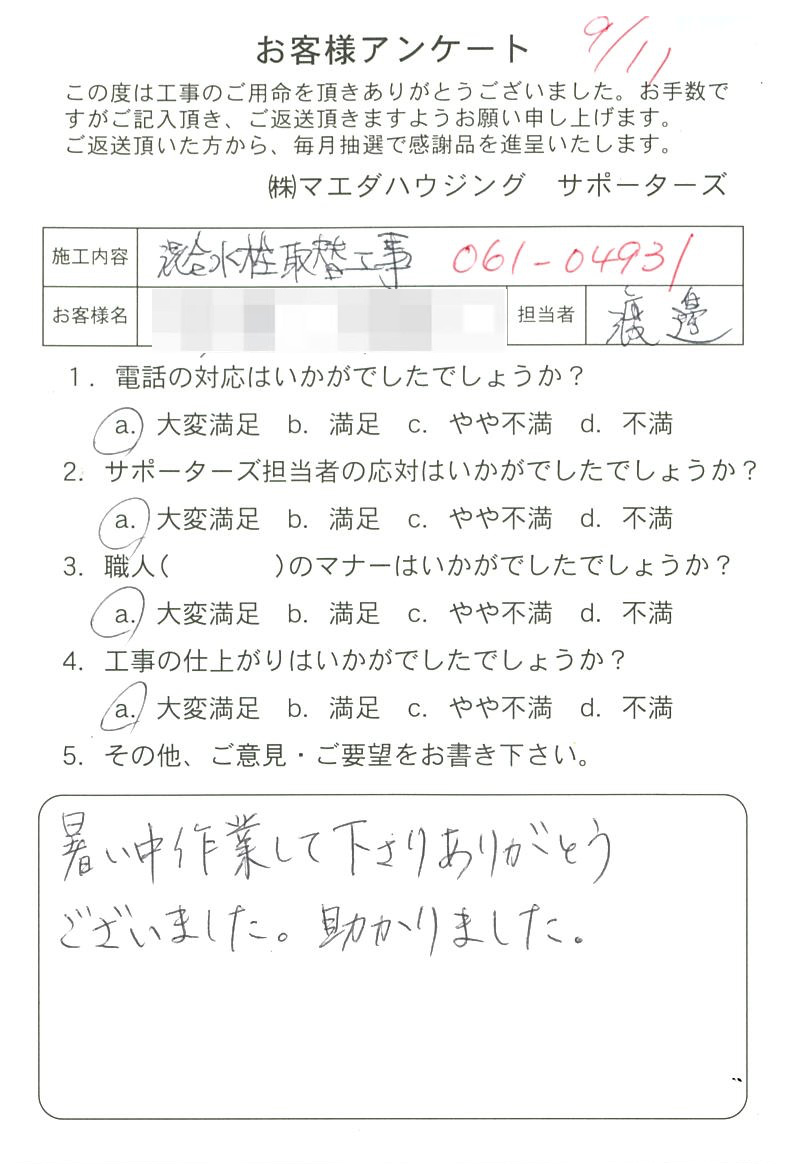 9/11
お客様アンケート
この度は工事のご用命を頂きありがとうございました。お手数で
すがご記入頂き、ご返送頂きますようお願い申し上げます。
ご返送頂いた方から、毎月抽選で感謝品を進呈いたします。
㈱マエダハウジング サポーターズ
施工内容 混合水栓取替工事 061-04931
お客様名 担当者 渡邊
1. 電話の対応はいかがでしたでしょうか?
a. 大変満足 b. 満足 c. やや不満 d. 不満
2. サポーターズ担当者の応対はいかがでしたでしょうか?
a. 大変満足 b. 満足 c. やや不満 d. 不満
3. 職人( )のマナーはいかがでしたでしょうか?
a. 大変満足 b. 満足 c. やや不満 d. 不満
4. 工事の仕上がりはいかがでしたでしょうか?
a. 大変満足 b. 満足 c. やや不満 d. 不満
5. その他、ご意見・ご要望をお書き下さい。
暑い中作業して下さりありがとう
ございました。助かりました。